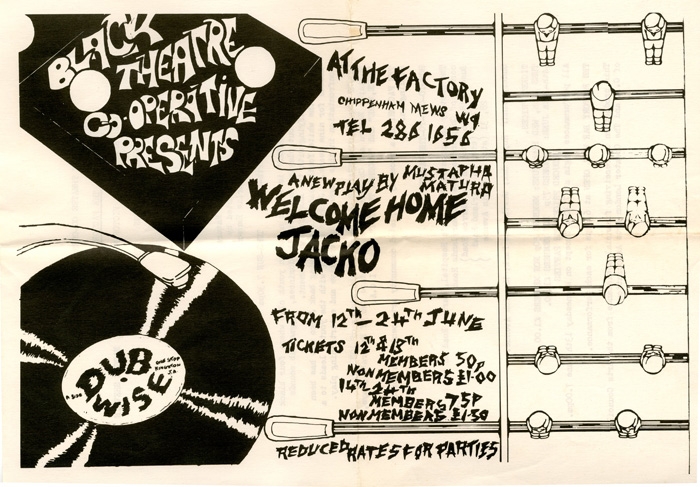 BLACK
THEATRE
CO-OPERATIVE
PRESENTS
AT THE FACTORY
CHIPPENHAM MEWS W9
TEL 286 1656
A NEW PLAY BY MUSTAPHA
MATURA
WELCOME HOME
JACKO
FROM 12TH - 24TH JUNE
TICKETS 12TH & 13TH
MEMBERS 50p
NON MEMBERS £1.00
14TH - 24TH
MEMBERS 75P
NON MEMBERS £1.50
REDUCED RATES FOR PARTIES
DUB
WISE
A SIDE
ONE STOP
KINGSTON
J.A.